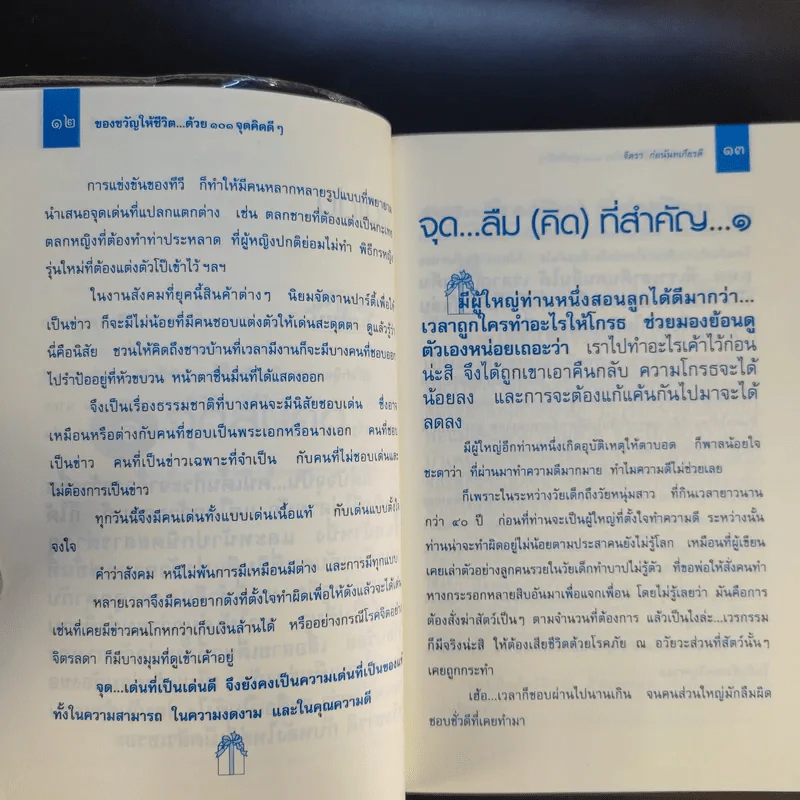 ๑๒ ของขวัญให้ชีวิต...ด้วย ๑๐๑ จุดคิดดี ๆ
การแข่งขันของทีวี ก็ทำให้มีคนหลากหลายรูปแบบที่พยายาม
นำเสนอจุดเด่นที่แปลกแตกต่าง เช่น ตลกชายที่ต้องแต่งเป็นกะเทย
ตลกหญิงที่ต้องทำท่าประหลาด ที่ผู้หญิงปกติย่อมไม่ทำ พิธีกรหญิง
รุ่นใหม่ที่ต้องแต่งตัวโป๊เข้าไว้ ฯลฯ
ในงานสังคมที่ยุคนี้สินค้าต่างๆ นิยมจัดงานปาร์ตี้เพื่อให้
เป็นข่าว ก็จะมีไม่น้อยที่มีคนชอบแต่งตัวให้เด่นสะดุดตา ดูแล้วรู้ว่า
นี่คือนิสัย ชวนให้คิดถึงชาวบ้านที่เวลามีงานก็จะมีบางคนที่ชอบออก
ไปรำป้ออยู่ที่หัวขบวน หน้าตาชื่นมื่นที่ได้แสดงออก
จึงเป็นเรื่องธรรมชาติที่บางคนจะมีนิสัยชอบเด่น ซึ่งอาจ
เหมือนหรือต่างกับคนที่ชอบเป็นพระเอกหรือนางเอก คนที่ชอบ
เป็นข่าว คนที่เป็นข่าวเฉพาะที่จำเป็น กับคนที่ไม่ชอบเด่นและ
ไม่ต้องการเป็นข่าว
ทุกวันนี้จึงมีคนเด่นทั้งแบบเด่นเนื้อแท้ กับเด่นแบบตั้งใจ
จงใจ
คำว่าสังคม หนีไม่พ้นการมีเหมือนมีต่าง และการมีทุกแบบ
หลายเวลาจึงมีคนอยากดังที่ตั้งใจทำผิดเพื่อให้ดังแล้วจะได้เด่น
เช่นที่เคยมีข่าวคนโกหกว่าเก็บเงินล้านได้ หรืออย่างกรณีโรคจิตอย่าง
จิตรลดา ก็มีบางมุมที่ดูเข้าเค้าอยู่
จุด...เด่นที่เป็นเด่นดี จึงยังคงเป็นความเด่นที่เป็นของแท้
ทั้งในความสามารถ ในความงดงาม และในคุณความดี
จิตรา ก่อนันทเกียรติ ๑๓
จุด...ลืม (คิด) ที่สำคัญ...๑
มีผู้ใหญ่ท่านหนึ่งสอนลูกได้ดีมากว่า...
เวลาถูกใครทำอะไรให้โกรธ ช่วยมองย้อนดู
ตัวเองหน่อยเถอะว่า เราไปทำอะไรเค้าไว้ก่อน
น่ะสิ จึงได้ถูกเขาเอาคืนกลับ ความโกรธจะได้
น้อยลง และการจะต้องแก้แค้นกันไปมาจะได้
ลดลง
มีผู้ใหญ่อีกท่านหนึ่งเกิดอุบัติเหตุให้ตาบอด ก็พาลน้อยใจ
ชะตาว่า ที่ผ่านมาทำความดีมากมาย ทำไมความดีไม่ช่วยเลย
ก็เพราะในระหว่างวัยเด็กถึงวัยหนุ่มสาว ที่กินเวลายาวนาน
กว่า ๔๐ ปี ก่อนที่ท่านจะเป็นผู้ใหญ่ที่ตั้งใจทำความดี ระหว่างนั้น
ท่านน่าจะทำผิดอยู่ไม่น้อยตามประสาคนยังไม่รู้โลก เหมือนที่ผู้เขียน
เคยเล่าตัวอย่างลูกคนรวยในวัยเด็กทำบาปไม่รู้ตัว ที่ขอพ่อให้สั่งคนทำ
หางกระรอกหลายสิบอันมาเพื่อแจกเพื่อน โดยไม่รู้เลยว่า มันคือการ
ต้องสั่งฆ่าสัตว์เป็นๆ ตามจำนวนที่ต้องการ แล้วเป็นไงล่ะ...เวรกรรม
ก็มีจริงน่ะสิ ให้ต้องเสียชีวิตด้วยโรคภัย ณ อวัยวะส่วนที่สัตว์นั้นๆ
เคยถูกกระทำ
เฮ้อ...เวลาก็ชอบผ่านไปนานเกิน จนคนส่วนใหญ่มักลืมผิด
ชอบชั่วดีที่เคยทำมา